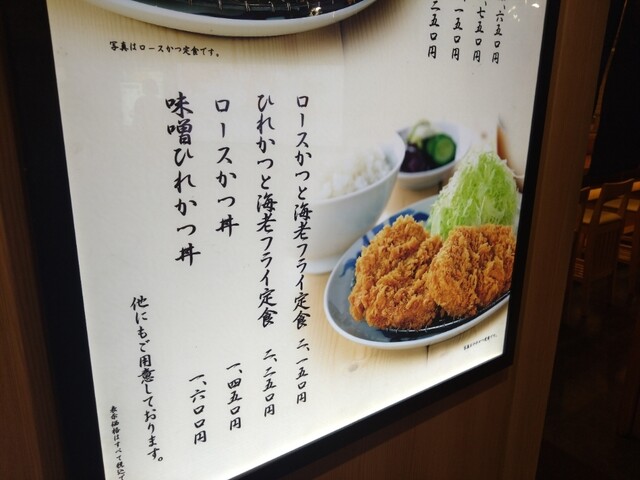 写真はロースかつ定食です。
ロースかつと海老フライ定食 二、一五〇円
ひれかつと海老フライ定食 二、二五〇円
ロースかつ丼 一、四五〇円
味噌ひれかつ丼 一、六〇〇円
他にもご用意しております。
表示価格はすべて税込で